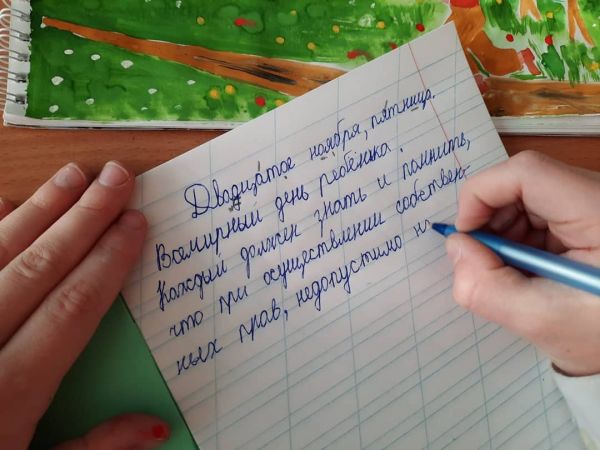 Двадцатое ноября, пятница.
Всемирный день ребёнка.
Каждый должен знать и помнить,
что при осуществлении собствен-
ных прав, недопустимо н